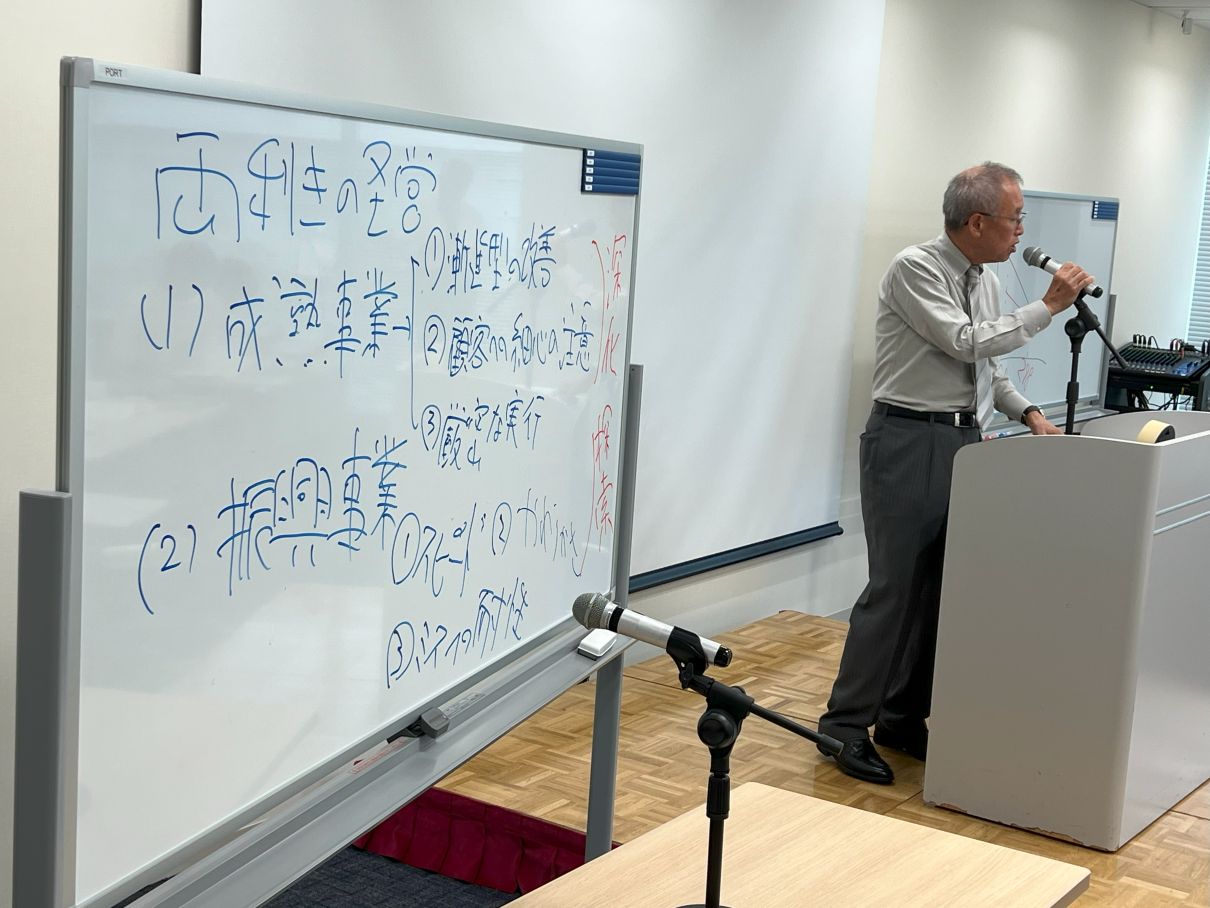 PORT
両利きの経営
(1) 成熟事業→
①漸進型の改善
②顧客への細心の注意
③厳密な実行
深化
(2) 振興事業
①スピード ②
③ミスへの耐性
探索